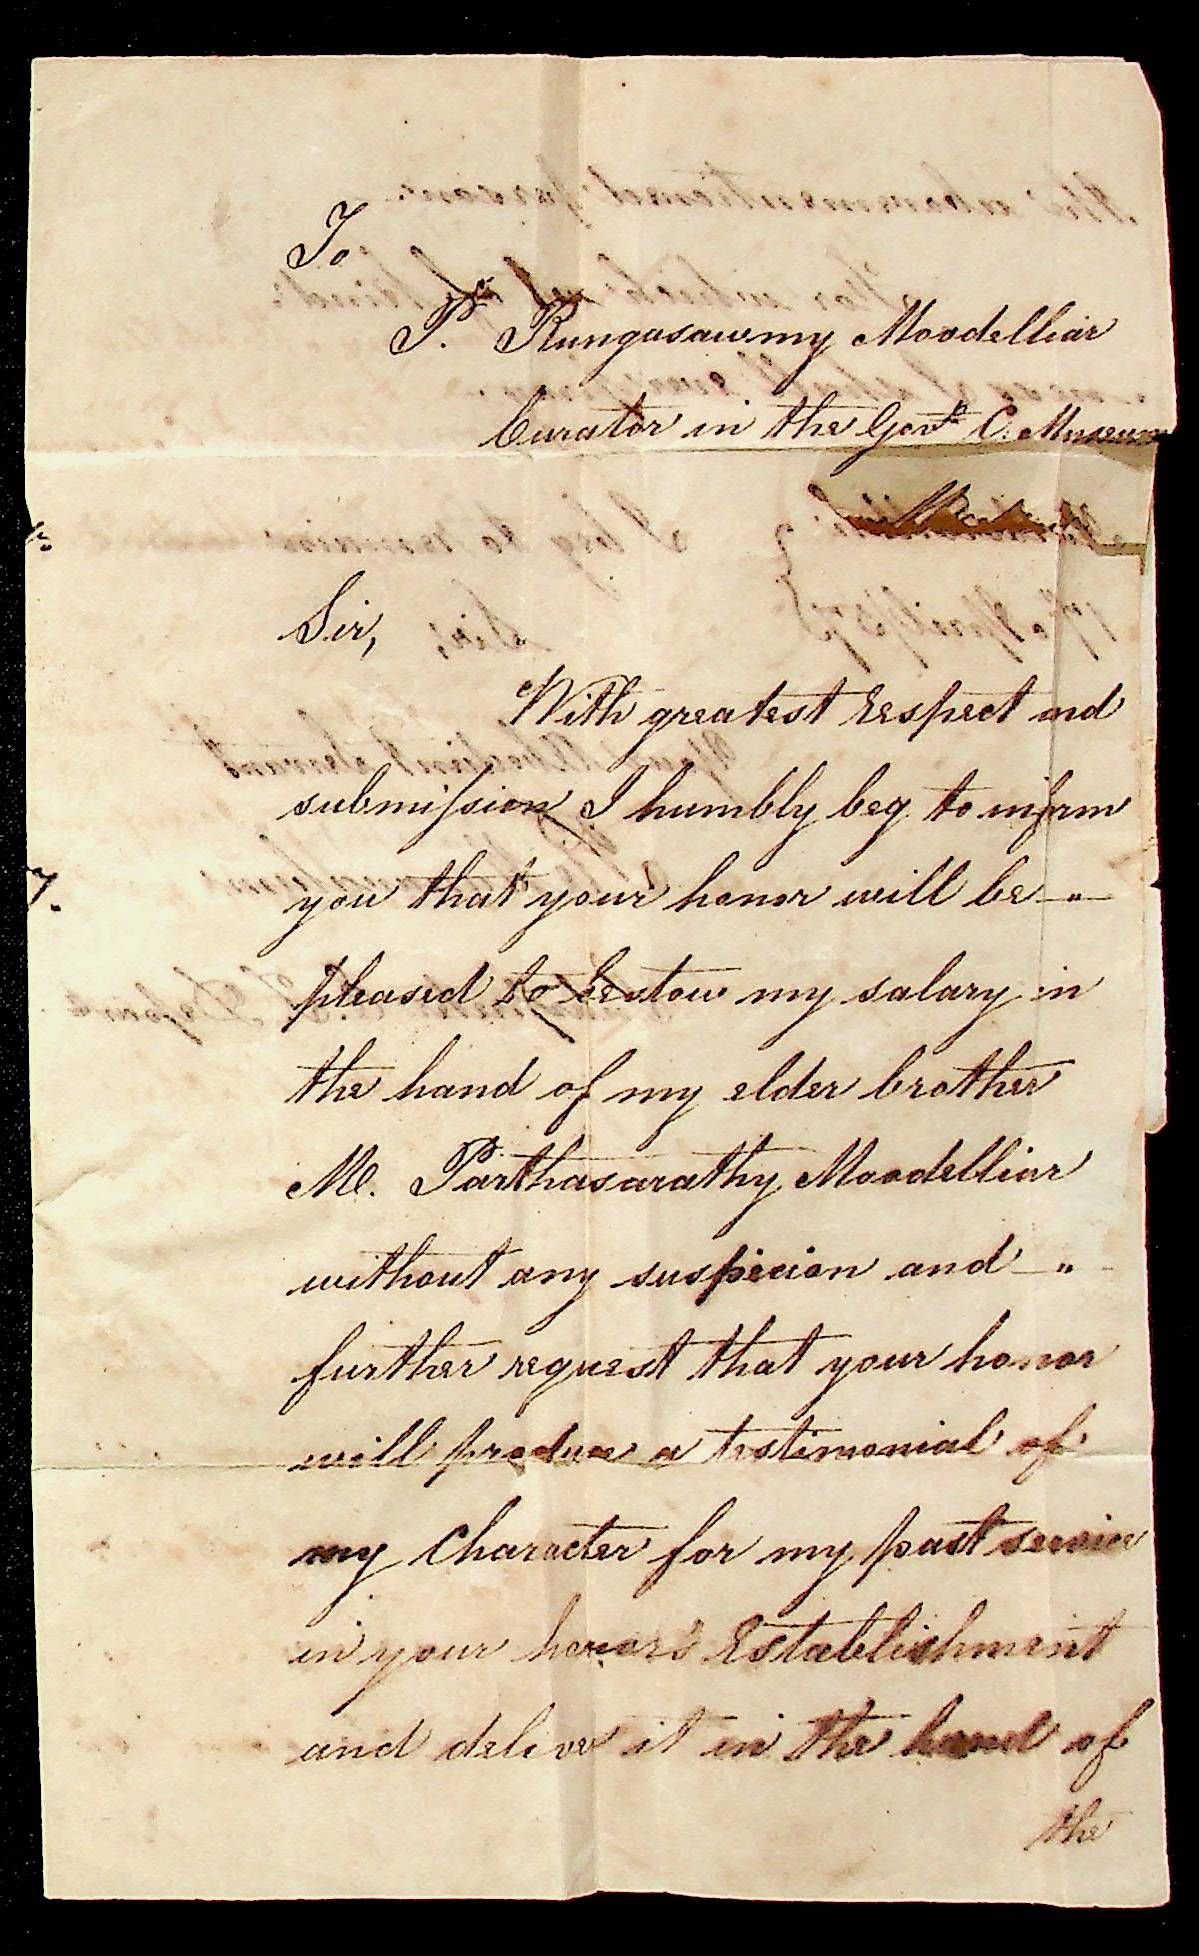 To
P. Rungasawmy Moodelliar
Curator in the Govt. C. Museum
Sir,
With greatest respect and
submission I humbly beg to inform
you that your honor will be
pleased to bestow my salary in
the hand of my elder brother
M. Parthasarathy Moodelliar
without any suspicion and
further request that your honor
will produce a testimonial of
my Character for my past service
in your honor's Establishment
and deliver it in the hand of
the